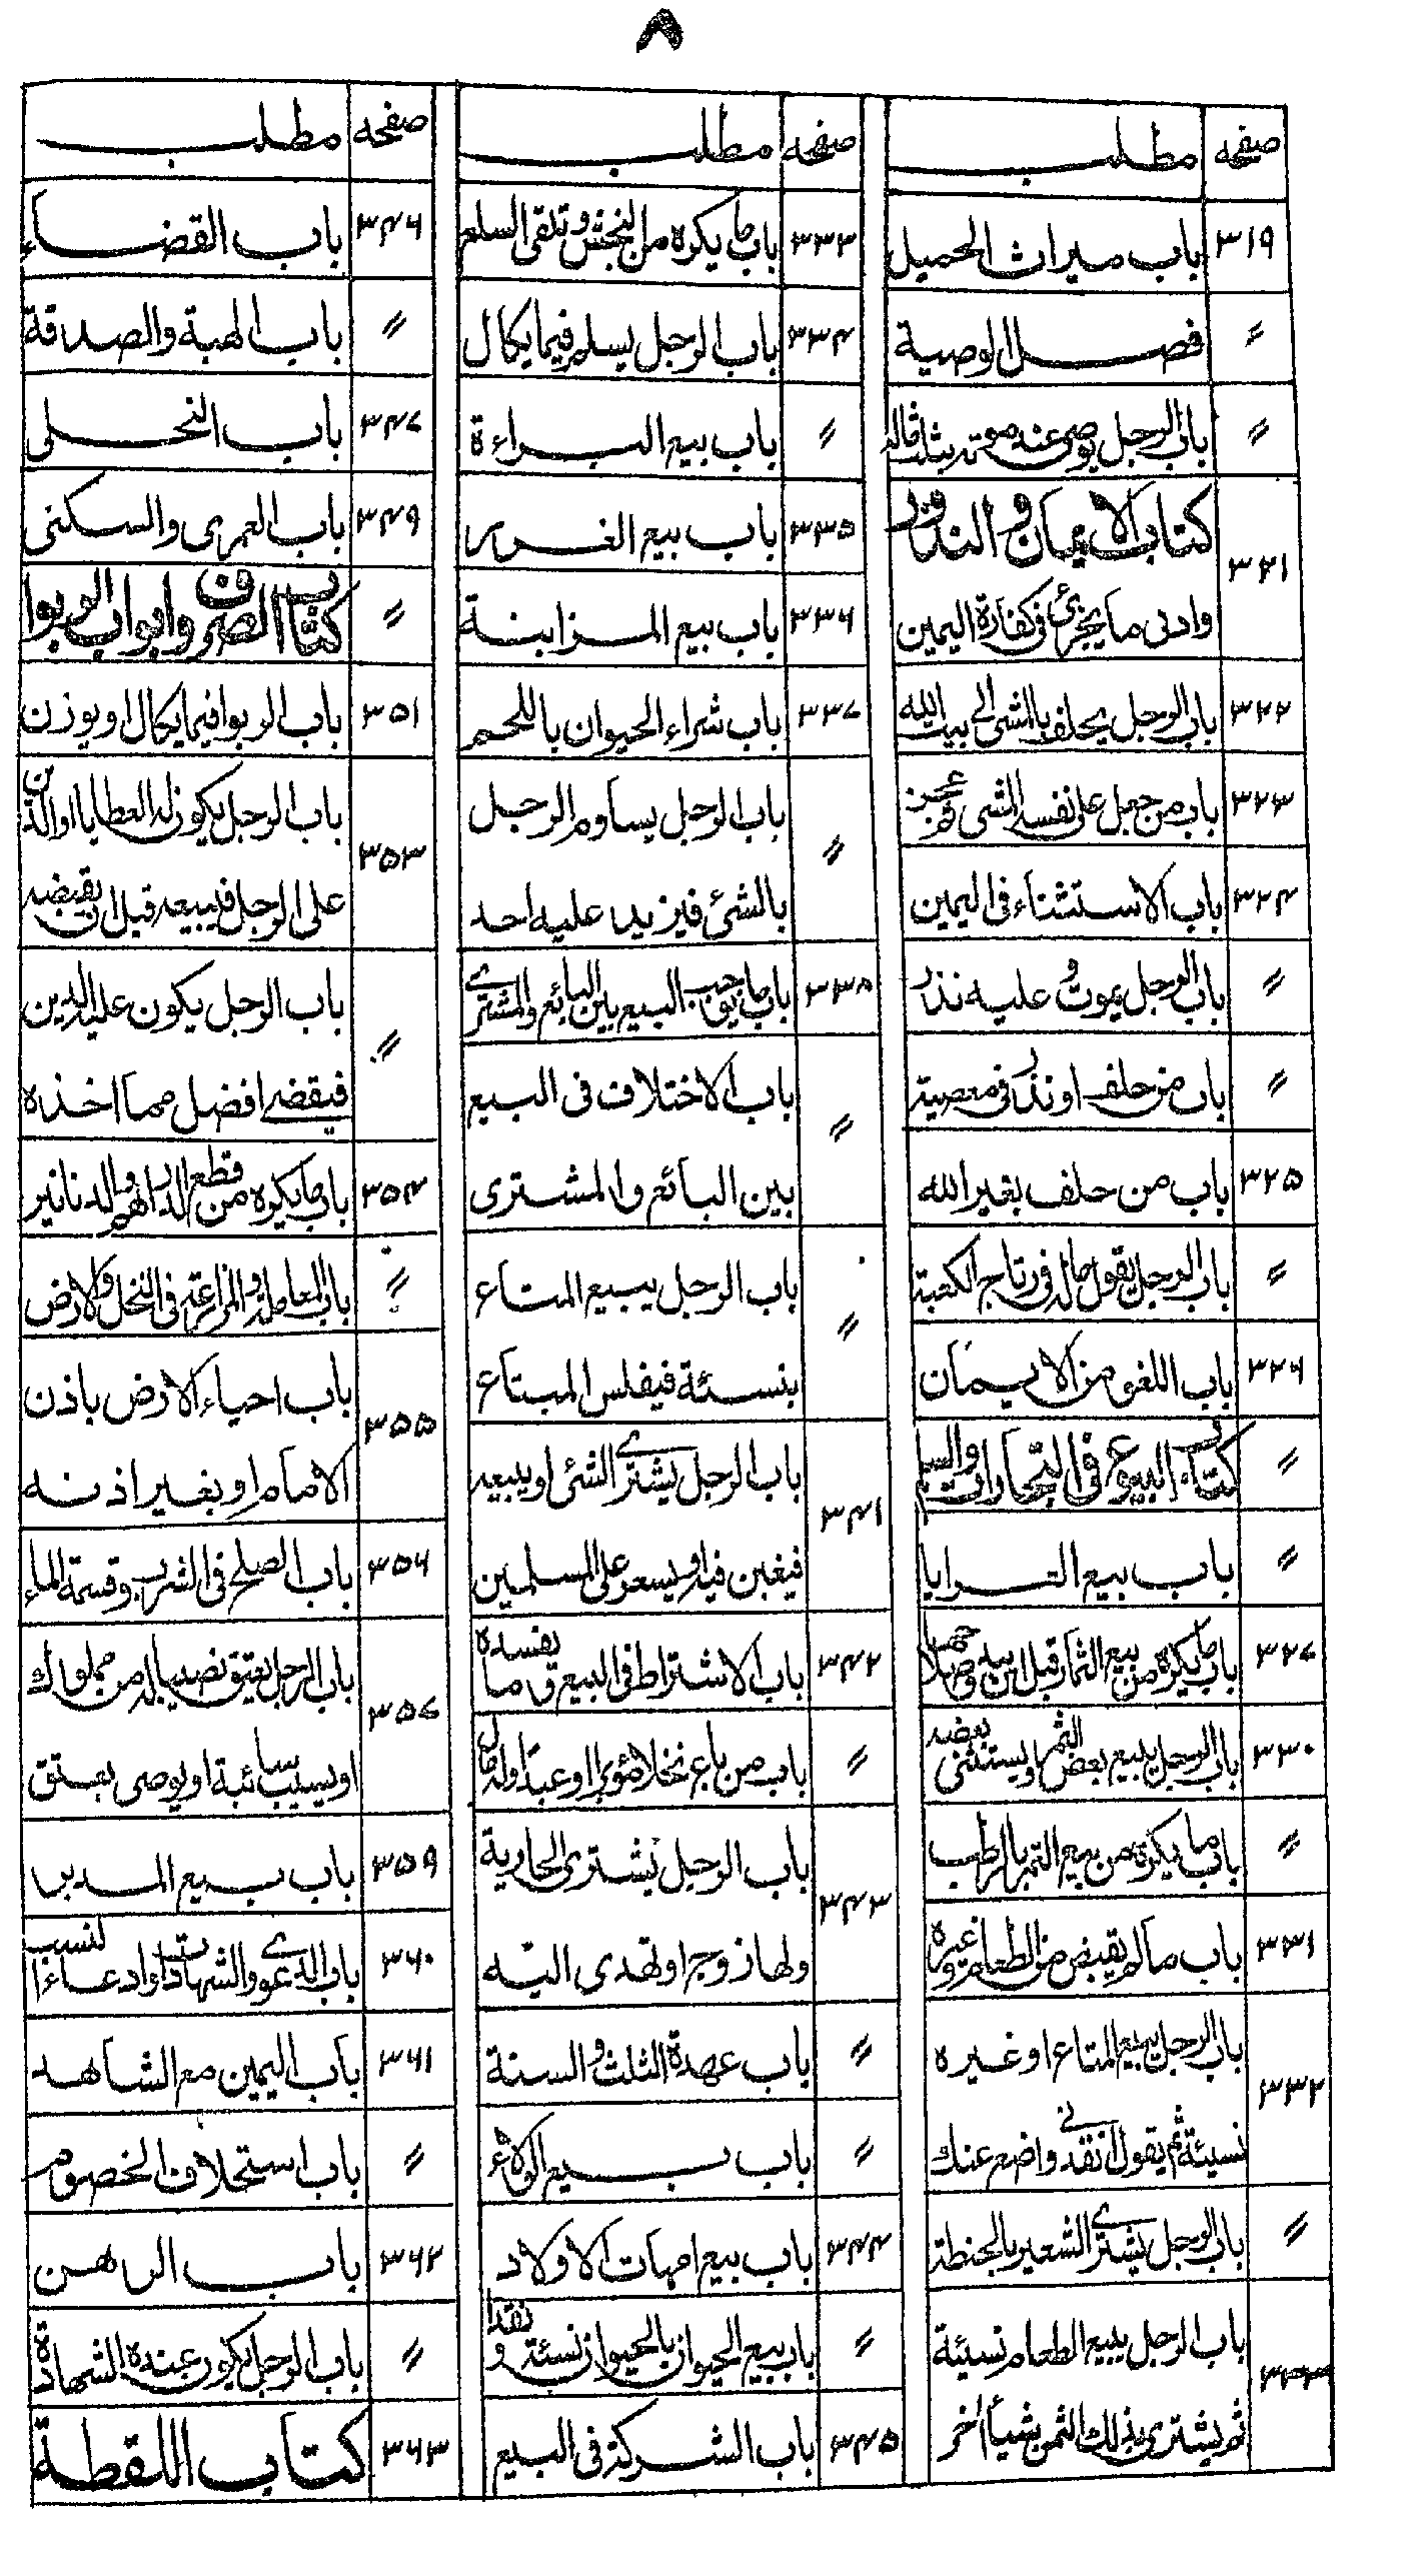 ۸
صفحه مطلب
۳۱۹ باب ميراث الحميل
〃 فصل الوصية
〃 باب الرجل يوصى عند موته بثلث ماله
۳۲۱ كتاب الايمان والنذور
وادنى ما يجزئ فى كفارة اليمين
۳۲۲ باب الرجل يحلف بالمشى الى بيت الله
۳۲۳ باب من جعل على نفسه المشى ثم عجز
۳۲۴ باب الاستثناء فى اليمين
〃 باب الرجل يموت و عليه نذر
〃 باب من حلف او نذر فى معصية
۳۲۵ باب من حلف بغير الله
〃 باب الرجل يقول ماله فى رتاج الكعبة
۳۲۶ باب اللغو من الايمان
〃 كتاب البيوع فى التجارات والسلم
〃 باب بيع العرايا
۳۲۷ باب ما يكره من بيع الثمار قبل ان يبدو صلاحها
۳۳۰ باب الرجل يبيع بعض الثمر ويستثنى بعضه
〃 باب ما يكره من بيع التمر بالرطب
۳۳۱ باب مالم يقبض من الطعام وغيره
۳۳۲ باب الرجل يبيع المتاع او غيره
نسيئة ثم يقول انقدنى واضع عنك
〃 باب الرجل يشترى الشعير بالحنطة
۳۳۳ باب الرجل يبيع الطعام نسيئة
ثم يشترى بذلك الثمن شيأ اخر
صفحه مطلب
۳۳۳ باب ما يكره من النجش و تلقى السلع
۳۳۴ باب الرجل يسلم فيما يكال
〃 باب بيع البراءة
۳۳۵ باب بيع الغرر
۳۳۶ باب بيع المزابنة
۳۳۷ باب شراء الحيوان باللحم
〃 باب الرجل يساوم الرجل
بالشئ فيزيد عليه احد
۳۳۸ باب ما يوجب البيع بين البائع والمشترى
〃 باب الاختلاف فى البيع
بين البائع والمشترى
〃 باب الرجل يبيع المتاع
بنسئة فيفلس المبتاع
۳۴۱ باب الرجل يشترى الشئ او يبيعه
فيغبن فيه او يسعر على المسلمين
۳۴۲ باب الاشتراط فى البيع وما يفسده
〃 باب من باع نخلا مؤبرا او عبدا وله مال
۳۴۳ باب الرجل يشترى الجارية
ولها زوج او تهدى اليه
〃 باب عهدة الثلث و السنة
〃 باب بيع الولاء
۳۴۴ باب بيع امهات الاولاد
〃 باب بيع الحيوان بالحيوان نسئة و نقدا
۳۴۵ باب الشركة فى البيع
صفحه مطلب
۳۴۶ باب القضاء
〃 باب الهبة والصدقة
۳۴۷ باب النحلى
۳۴۹ باب العمرى والسكنى
〃 كتاب الصرف وابواب الربوا
۳۵۱ باب الربوا فيما يكال او يوزن
۳۵۳ باب الرجل يكون له العطايا او الدين
على الرجل فيبيعه قبل ان يقبضه
〃 باب الرجل يكون عليه الدين
فيقضى افضل مما اخذه
۳۵۴ باب ما يكره من قطع الدراهم والدنانير
〃 باب المعاملة والمزارعة فى النخل والارض
۳۵۵ باب احياء الارض باذن
الامام او بغير اذنه
۳۵۶ باب الصلح فى الشرب وقسمة الماء
۳۵۷ باب الرجل يعتق نصيباله من مملوك
او يسيب سائبة او يوصى بعتق
۳۵۹ باب بيع المدبر
۳۶۰ باب الدعوى والشهادات وادعاء النسب
۳۶۱ باب اليمين مع الشاهد
〃 باب استحلاف الخصوم
۳۶۲ باب الرهن
〃 باب الرجل يكون عنده الشهادة
۳۶۳ كتاب اللقطة